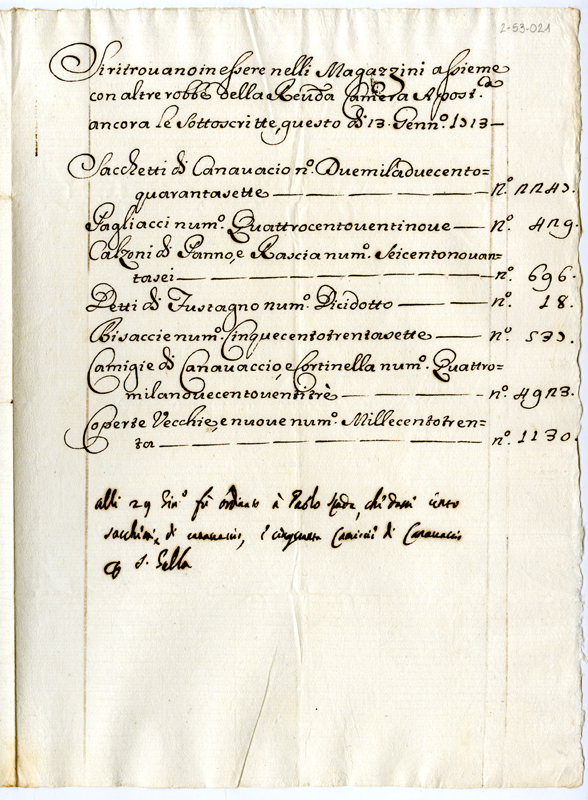 2-53-021
Si ritrovano in essere nelli Magazzini assieme
con altre robbe della Reuda Camera Apost.ca
ancora le Sottoscritte, questo dì 13 Genn.o 1713
Sacchetti di Canauacio n.o Duemiladuecento=
quarantasette — n.o 2247.
Pagliacci num.o Quattrocentouentinoue — n.o 429.
Calzoni di Panno, e Rascia num.o Seicentonouan=
tasei — n.o 696.
Petti di Fustagno num.o Dicidotto — n.o 18.
Bisaccie num.o Cinquecentotrentasette — n.o 537.
Camigie di Canauaccio, e Cortinella num.o Quattro=
milanouecentouentitrè — n.o 4923.
Coperte Vecchie, e nuoue num.o Millecentotren=
ta — n.o 1130.
alli 29 fù ordinato à Pablo che dassi cento
di canauacio, e cinquanta Camicie di Canauacio
S.